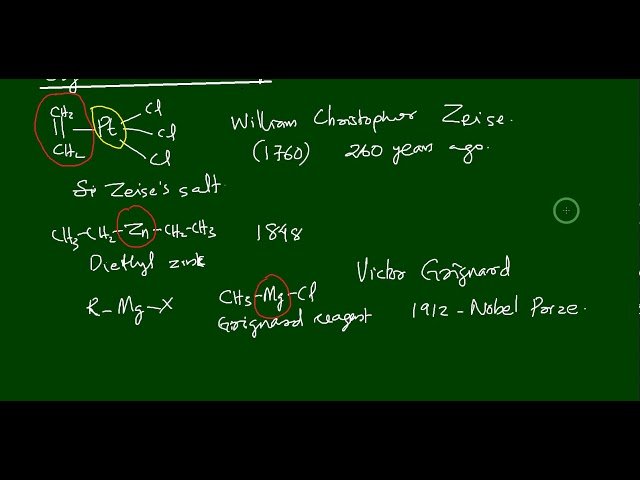 CH2 || CH2 — Pt Cl Cl Cl William Christopher Zeise.
(1760) 260 years ago.
Zeise's salt.
CH3-CH2-Zn-CH2-CH3 1848
Diethyl zink
Victor Grignard
R-Mg-X CH3-Mg-Cl
Grignard reagent 1912 - Nobel Prize.